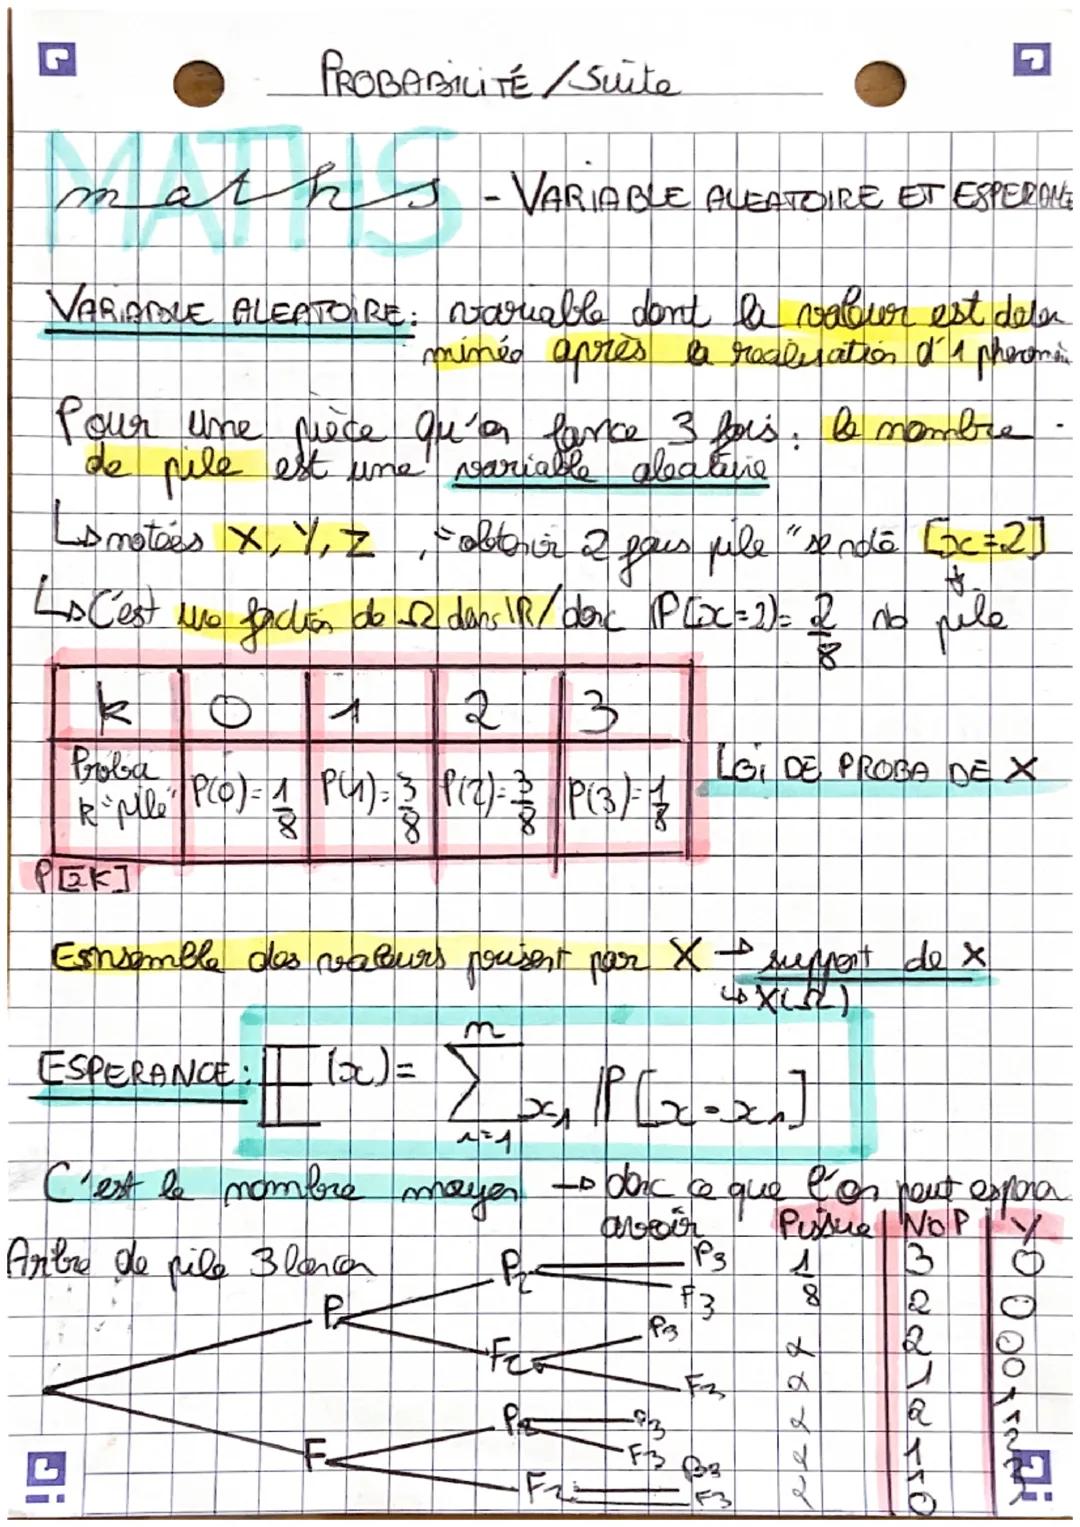 PROBABILITÉ / Suite
MATHS
maths - VARIABLE ALEATOIRE ET ESPERANCE
VARIABLE ALEATOIRE: variable dont la valeur est deter
minée après la realisation d'1 phenomèn
Pour une pièce qu'on lance 3 fois: le nombre
de pile est une variable aleatoire
↳ notées X, Y, Z, "obtenir 2 fois pile" se note [x=2]
↳ C'est une fonction de Ω dans IR / donc IP[x=2)= 2/8 nb pile
k 0 1 2 3
Proba k "pile" P(0)=1/8 P(1)=3/8 P(2)=3/8 P(3)=1/8 LOI DE PROBA DE X
Ensemble des valeurs prisent par X → support de X
↳ X(Ω)
ESPERANCE: E(x)= n Σ i=1 IP[x=
C'est le nombre moyen → donc ce que l'on peut espérer
avoir
Arbre de pile 3 lancer
P F
P2 F2 P2 F2
P3 F3 P3 F3 P3 F3 P3 F3
1/8
Nb P
3 2 2 1 2 1 1 0
Y
0 0 0 0 1 1 2 3